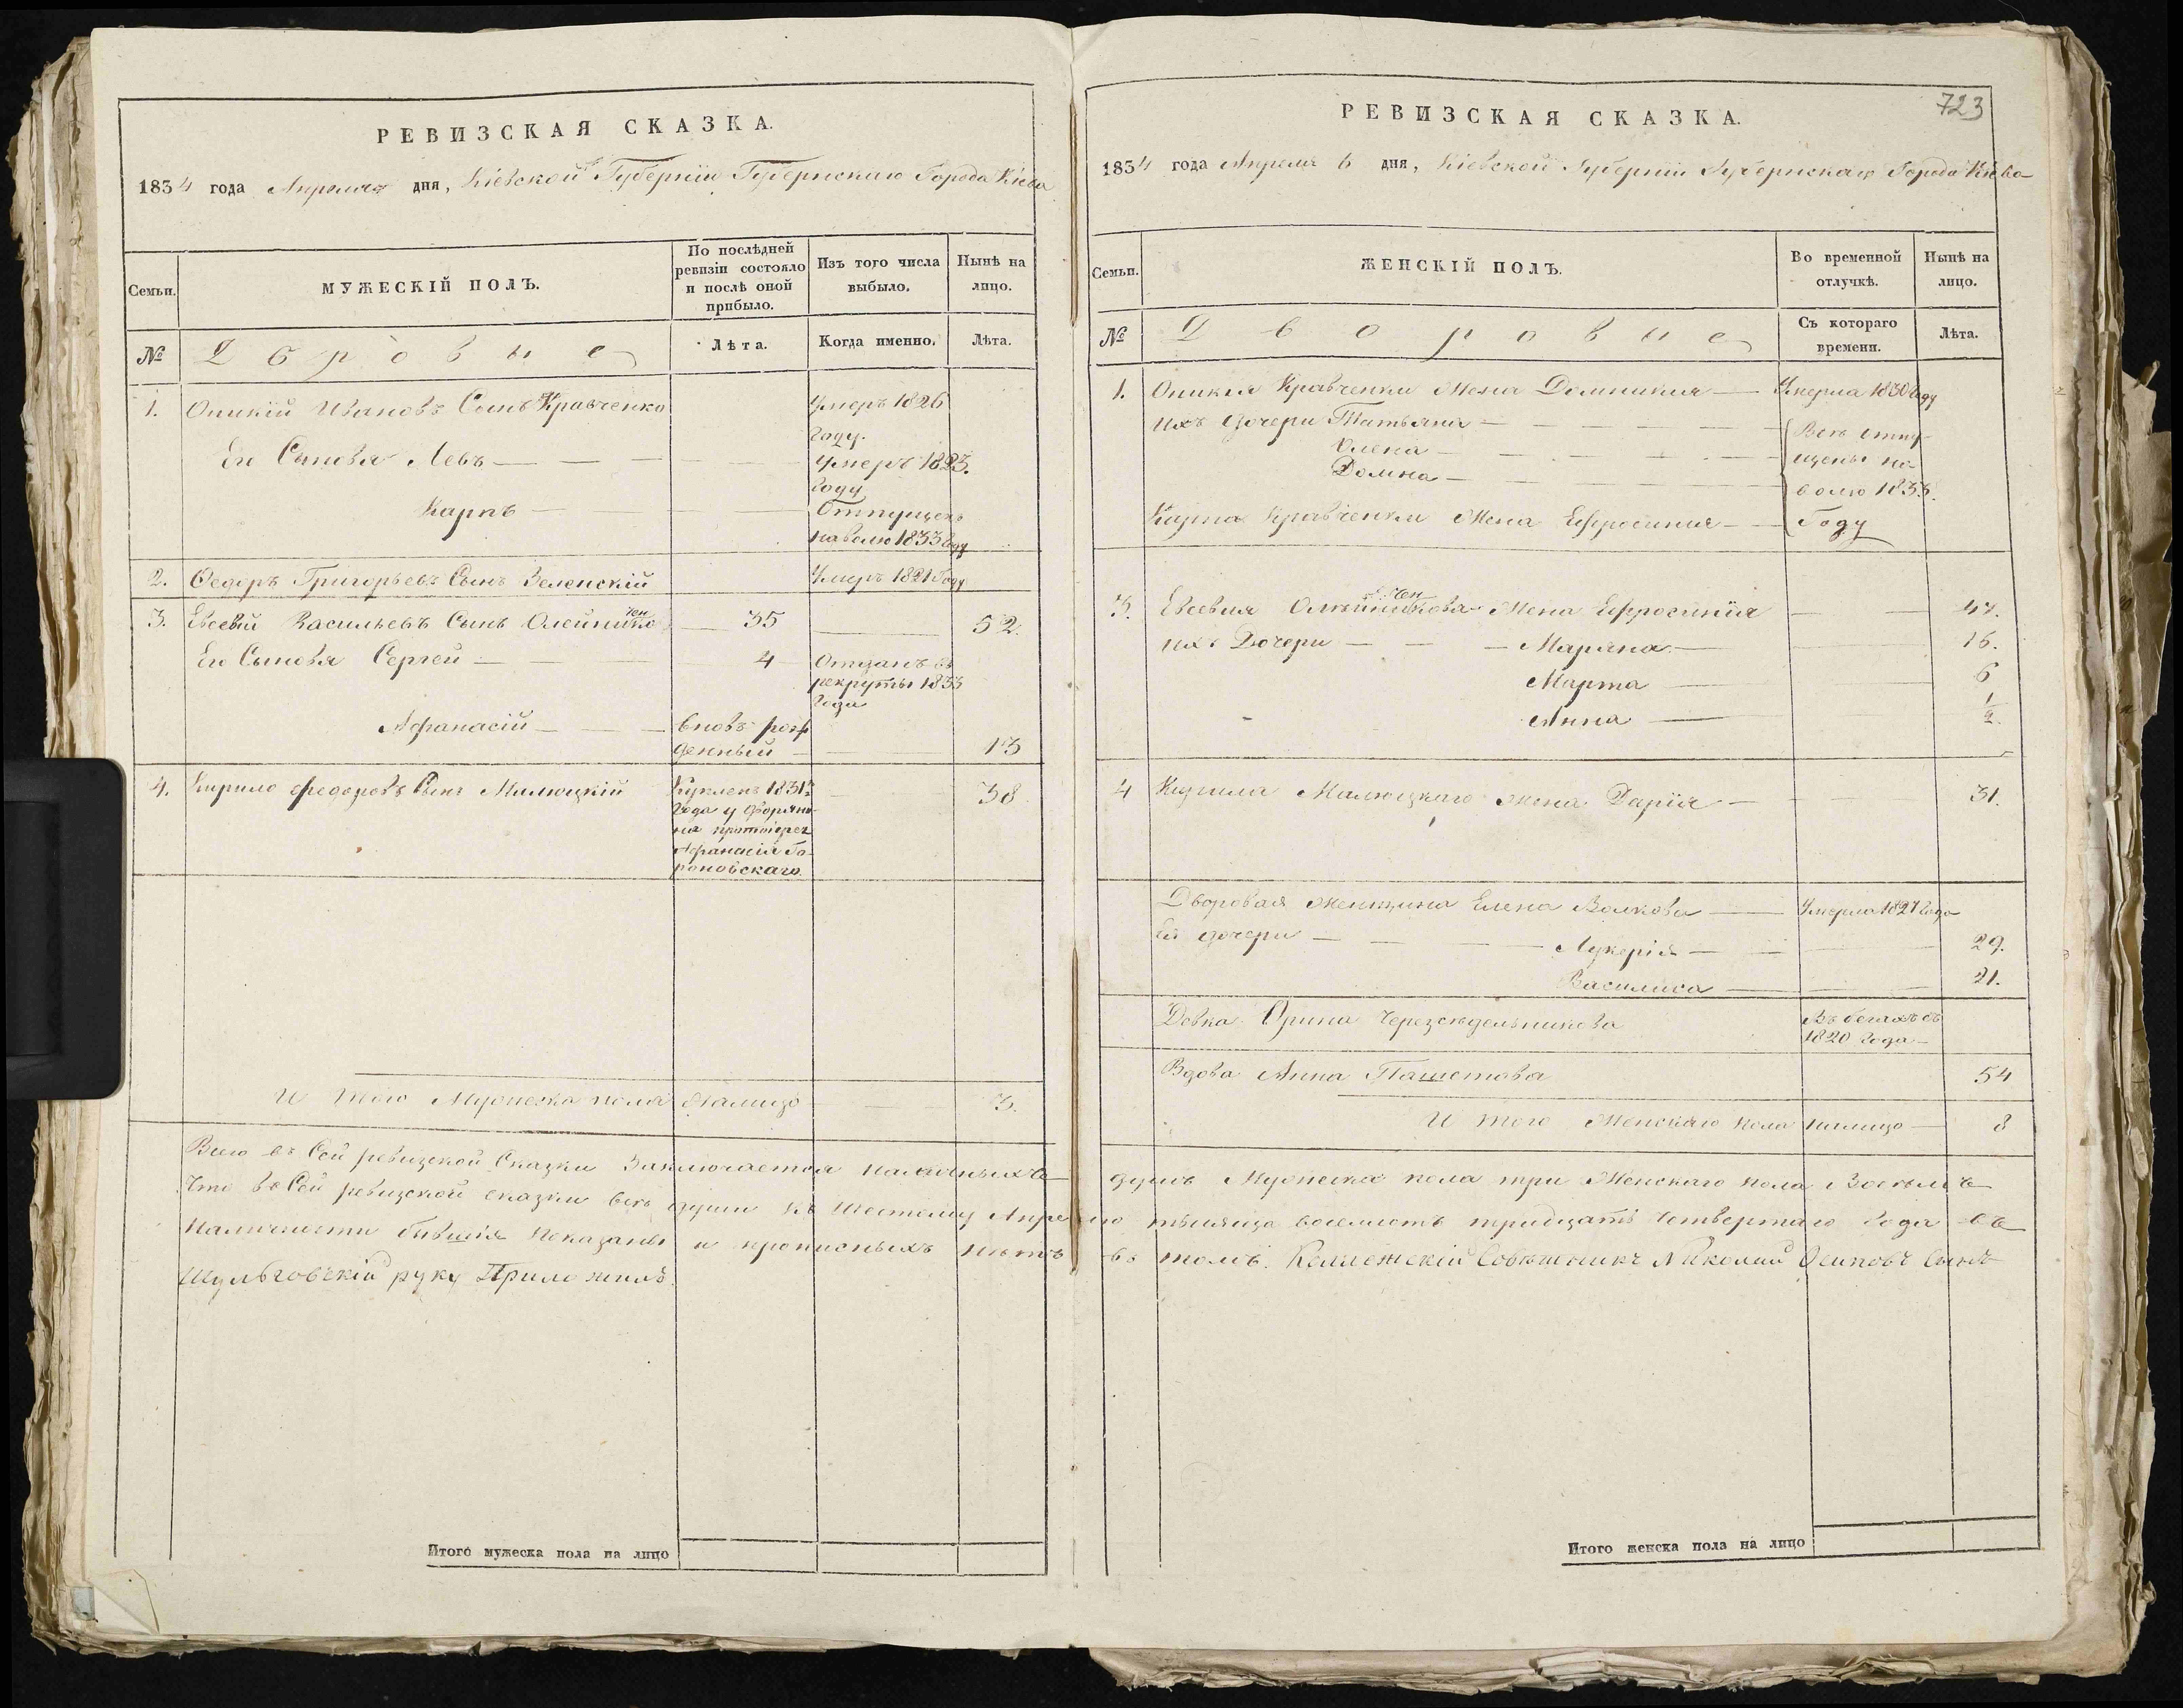 РЕВИЗСКАЯ СКАЗКА.
1834 года Апреля 6 дня, Кіевской Губерніи Губернскаго Города Кіева
Семьи.
МУЖЕСКІЙ ПОЛЪ.
По послѣдней ревизіи состояло и послѣ оной прибыло.
Изъ того числа выбыло.
Нынѣ на лицо.
№
Дворовые
Лѣта.
Когда именно.
Лѣта.
1. Оникій Ивановъ Сынъ Кравченко
Умеръ 1826 Году.
Его Сыновя Левъ
Умеръ 1823. Году
Карпъ
Отпущенъ на волю 1833 Году
2. Федоръ Григорьевъ Сынъ Зеленскій
Умеръ 1821 Году
3. Евсевій Васильевъ Сынъ Олейниченко 35 52.
Его Сыновя Сергей 4
Отданъ въ рекруты 1833 Года
Афанасій
вновь рожденный 13
4. Кирило Федоровъ Сынъ Милюцкій
Купленъ 1831го Года у дворянина протоіерея Афанасія 38
И того Мужеска пола налицо 3.
Всего въ Сей ревизской Сказки Заключается наличныхъ
Что въ Сей ревизской сказки всѣ души къ Шестому Апре
наличности бывшія показаны и прописныхъ нѣтъ
Шульговскій руку Приложилъ.
Итого мужеска пола на лицо
723
РЕВИЗСКАЯ СКАЗКА.
1834 года Апреля 6 дня, Кіевской Губерніи Губернскаго Города Кіева
Семьи.
ЖЕНСКІЙ ПОЛЪ.
Во временной отлучкѣ.
Нынѣ на лицо.
№
Дворовые
Съ котораго времени.
Лѣта.
1. Оникія Кравченки Жена Домникия Умерла 1830 Году
ихъ дочери Татьяна
Олена
Домна
Карпа Кравченки Жена Ефросиния
Всѣ отпущены на волю 1833. Году
3. Евсевия Олейниченкова Жена Ефросинія 47.
ихъ Дочери Маряна 16.
Марта 6
Анна 1/2.
4 Кирила Милюцкаго жена Дарія 31.
Дворовая женщина Елена Волкова Умерла 1827 Года
Ея дочери Лукерія 29.
Василиса 21.
Девка Орина Черезсидельникова
Въ бегахъ съ 1820 Года
Вдова Анна Паштетова 54
И того Женскаго пола налицо 8
душъ Мужеска пола три Женскаго пола Восемъ
лю мѣсяца восемсотъ тридцать четвертаго Года въ
въ томъ. Колежскій Совѣтникъ Николай Осиповъ Сынъ
Итого женска пола на лицо